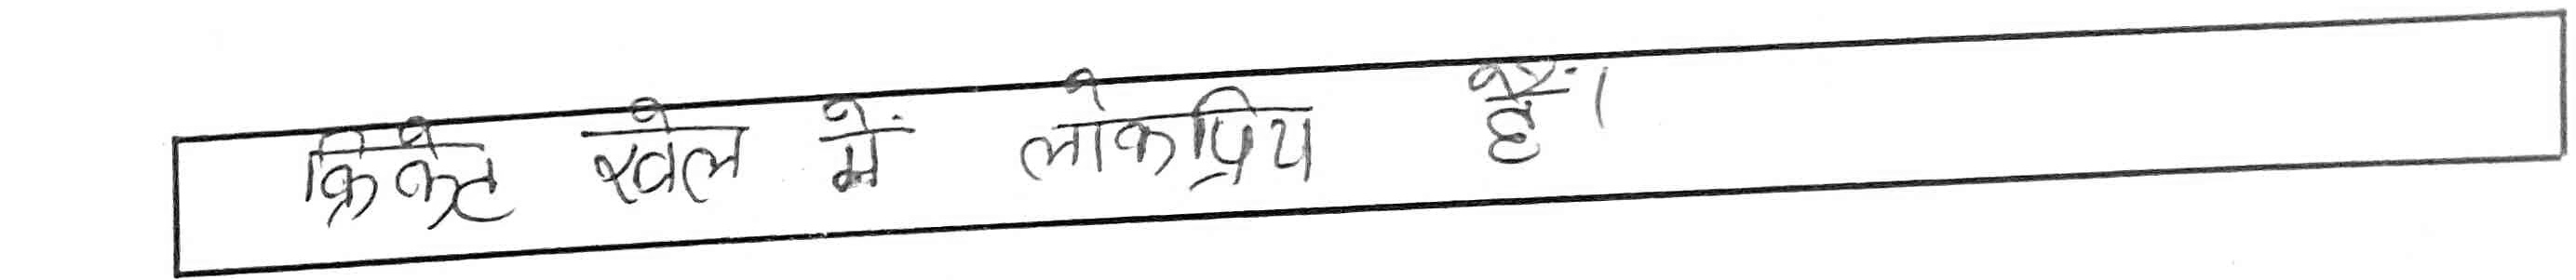 क्रिकेट खेल में लोकप्रिय हैं।